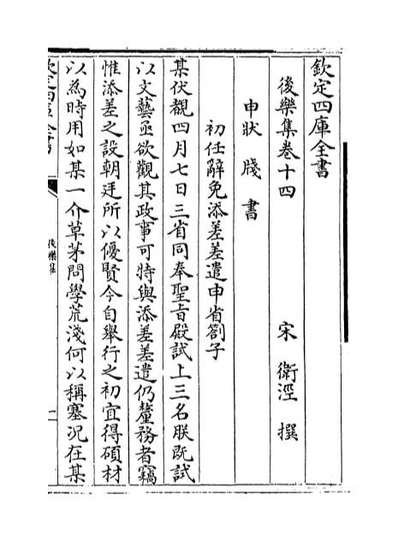 欽定四庫全書
後樂集卷十四
宋 衛涇 撰
申狀 牋 書
初任辭免添差差遣申省劄子
某伏覩四月七日三省同奉聖旨殿試上三名朕既試
以文藝亟欲觀其政事可特與添差差遣仍釐務者竊
惟添差之設朝廷所以優賢今自舉行之初宜得碩材
以為時用如某一介草茅問學荒淺何以稱塞况在某
欽定四庫全書
後樂集